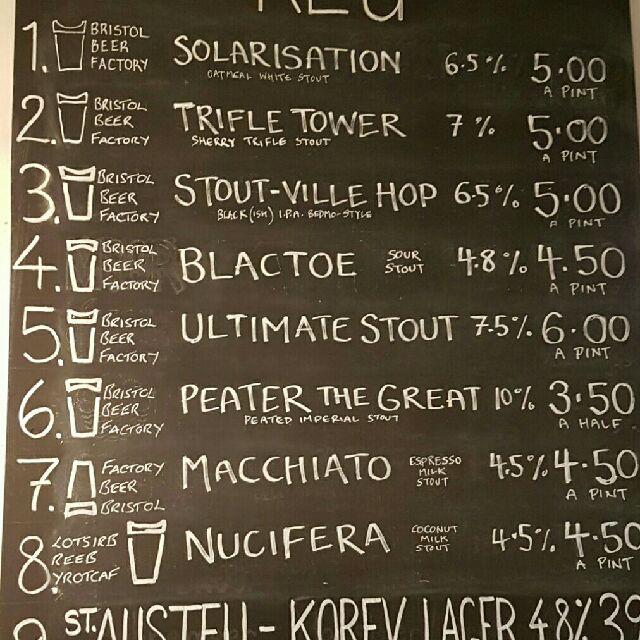 KEG
1. BRISTOL BEER FACTORY SOLARISATION 6.5% 5.00
OATMEAL WHITE STOUT A PINT
2. BRISTOL BEER FACTORY TRIFLE TOWER 7% 5.00
SHERRY TRIFLE STOUT A PINT
3. BRISTOL BEER FACTORY STOUT-VILLE HOP 6.5% 5.00
BLACK(ISH) I.P.A. BEDMO-STYLE A PINT
4. BRISTOL BEER FACTORY BLACTOE SOUR STOUT 4.8% 4.50
A PINT
5. BRISTOL BEER FACTORY ULTIMATE STOUT 7.5% 6.00
A PINT
6. BRISTOL BEER FACTORY PEATER THE GREAT 10% 3.50
PEATED IMPERIAL STOUT A HALF
7. FACTORY BEER BRISTOL MACCHIATO ESPRESSO MILK STOUT 4.5% 4.50
A PINT
8. LOTSIRB REEB YROTCAF NUCIFERA COCONUT MILK STOUT 4.5% 4.50
A PINT
9 ST. AUSTELL - KOREV LAGER 4.8%